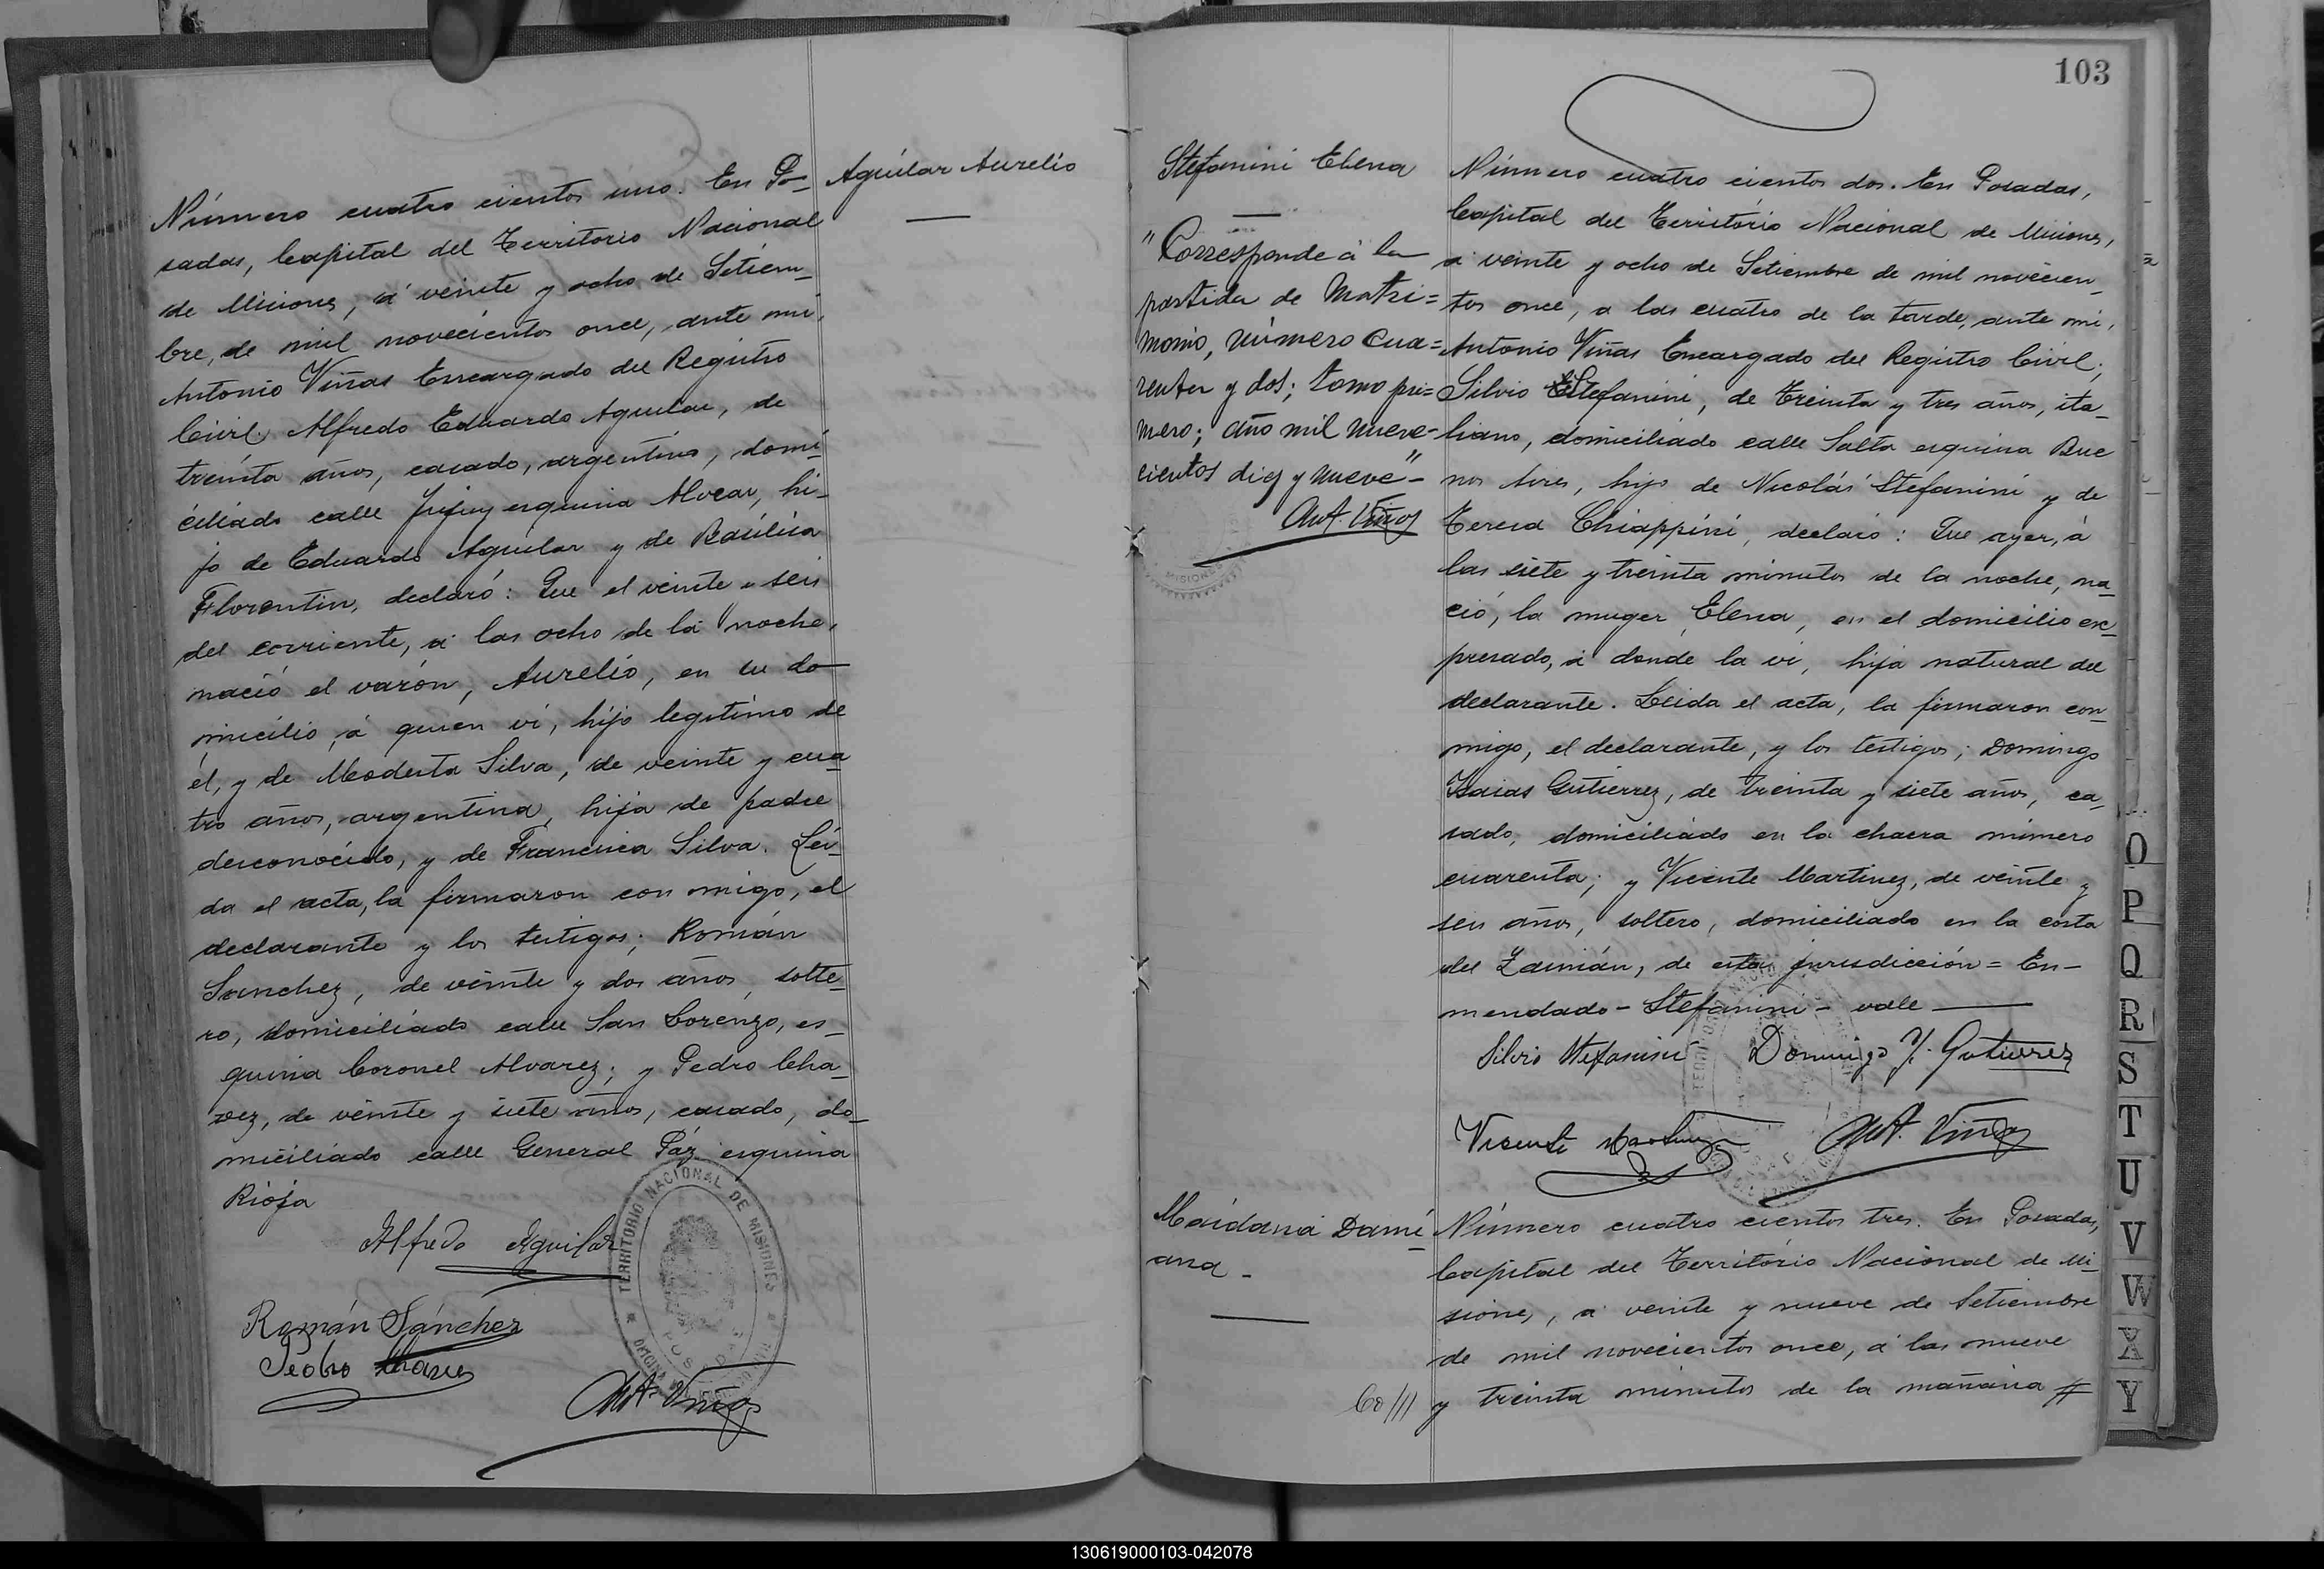 Número cuatro cientos uno. En Po-
sadas, Capital del Territorio Nacional
de Misiones, á veinte y ocho de Setiem-
bre, de mil novecientos once, ante mi,
Antonio Viñas Encargado del Registro
Civil; Alfredo Eduardo Aguilar, de
treinta años, casado, argentino, domi-
ciliado calle Jujuy esquina Alvear, hi-
jo de Eduardo Aguilar y de Basilisa
Florentin, declaró: Que el veinte y seis
del corriente, á las ocho de la noche,
nació el varón, Aurelio, en su do-
micilio, á quien vi, hijo legitimo de
él, y de Modesta Silva, de veinte y cua-
tro años, argentina, hija de padre
desconocido, y de Francisca Silva. Leí-
da el acta, la firmaron con migo, el
declarante y los testigos; Román
Sanchez, de veinte y dos años, solte-
ro, domiciliado calle San Lorenzo, es-
quina Coronel Alvarez; y Pedro Cha-
vez, de veinte y siete años, casado, do-
miciliado calle General Paz esquina
Rioja
Alfredo Aguilar
Román Sánchez
Pedro Chavez
Ant. Viñas
TERRITORIO NACIONAL DE MISIONES
POSADAS
Aguilar Aurelio
103
Stefanini Elena
"Corresponde á la
partida de Matri=
monio, número cua=
renta y dos; tomo pri=
mero; año mil nueve-
cientos diez y nueve"-
Ant. Viñas
MISIONES
Número cuatro cientos dos. En Posadas,
Capital del Territorio Nacional de Misiones,
á veinte y ocho de Setiembre de mil novecien-
tos once, a las cuatro de la tarde, ante mi,
Antonio Viñas Encargado del Registro Civil;
Silvio Stefanini, de treinta y tres años, ita-
liano, domiciliado calle Salta esquina Bue
nos Aires, hijo de Nicolás Stefanini y de
Teresa Chiappini, declaró: Que ayer, á
las siete y treinta minutos de la noche, na-
ció, la muger, Elena, en el domicilio ex-
presado, á donde la vi, hija natural del
declarante. Leida el acta, la firmaron con-
migo, el declarante, y los testigos; Domingo
Isaias Gutierrez, de treinta y siete años, ca-
sado, domiciliado en la chacra número
cuarenta; y Vicente Martinez, de veinte y
seis años, soltero, domiciliado en la costa
del Zaimán, de esta jurisdicción = En-
mendado - Stefanini - vale
Silvio Stefanini Domingo Y. Gutierrez
Vicente Martinez Ant. Viñas
Maidana Dami-
ana -
Número cuatro cientos tres. En Posadas,
Capital del Territorio Nacional de Mi-
siones, á veinte y nueve de Setiembre
de mil novecientos once, á las nueve
y treinta minutos de la mañana #
O
P
Q
R
S
T
U
V
W
X
Y
130619000103-042078